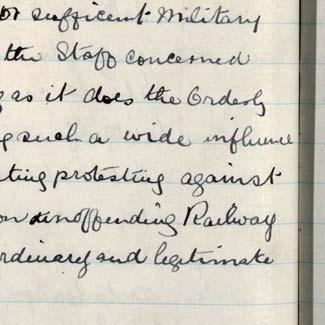 or sufficient Military
the Staff concerned
as it does the Orderly
such a wide influence
ting protesting against
on unoffending Railway
rdinary and legitimate